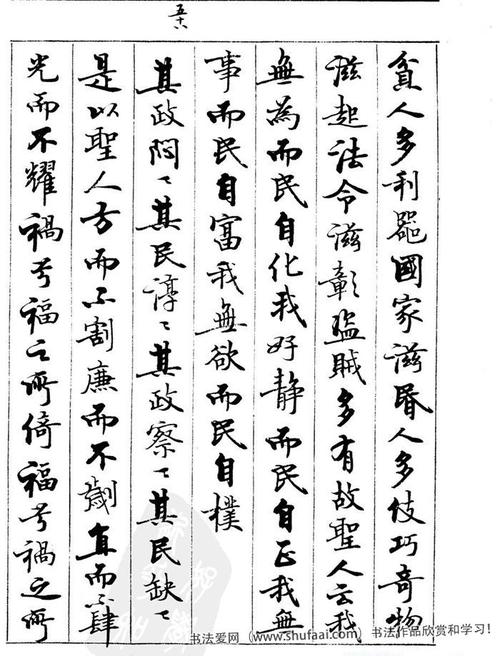 五十八
貧人多利器國家滋昏人多伎巧奇物
滋起法令滋彰盜賊多有故聖人云我
無為而民自化我好静而民自正我無
事而民自富我無欲而民自樸
其政悶〻其民淳〻其政察〻其民缺〻
是以聖人方而不割廉而不劌直而不肆
光而不耀禍兮福之所倚福兮禍之所
书法爱网（www.shufaai.com）书法作品欣赏和学习！